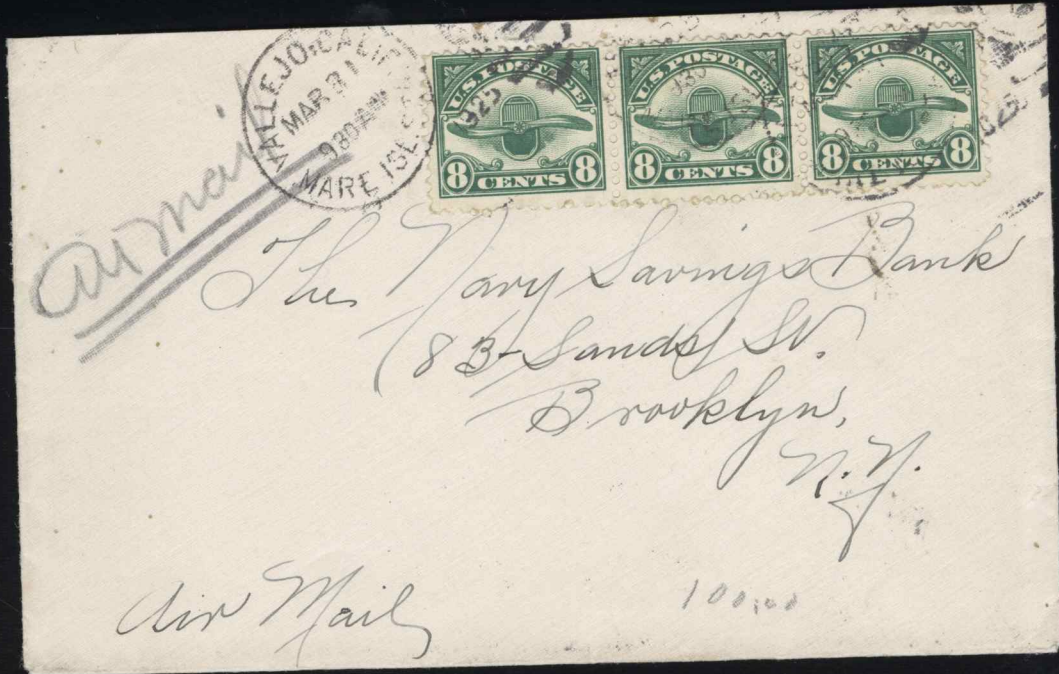 VALLEJO, CALIF.
MAR 31
930 AM
1925
MARE ISL.
U.S. POSTAGE
8 CENTS 8
U.S. POSTAGE
8 CENTS 8
U.S. POSTAGE
8 CENTS 8
Air mail
The Navy Savings Bank
83 - Sands St.
Brooklyn,
N.Y.
Air Mail
100.00